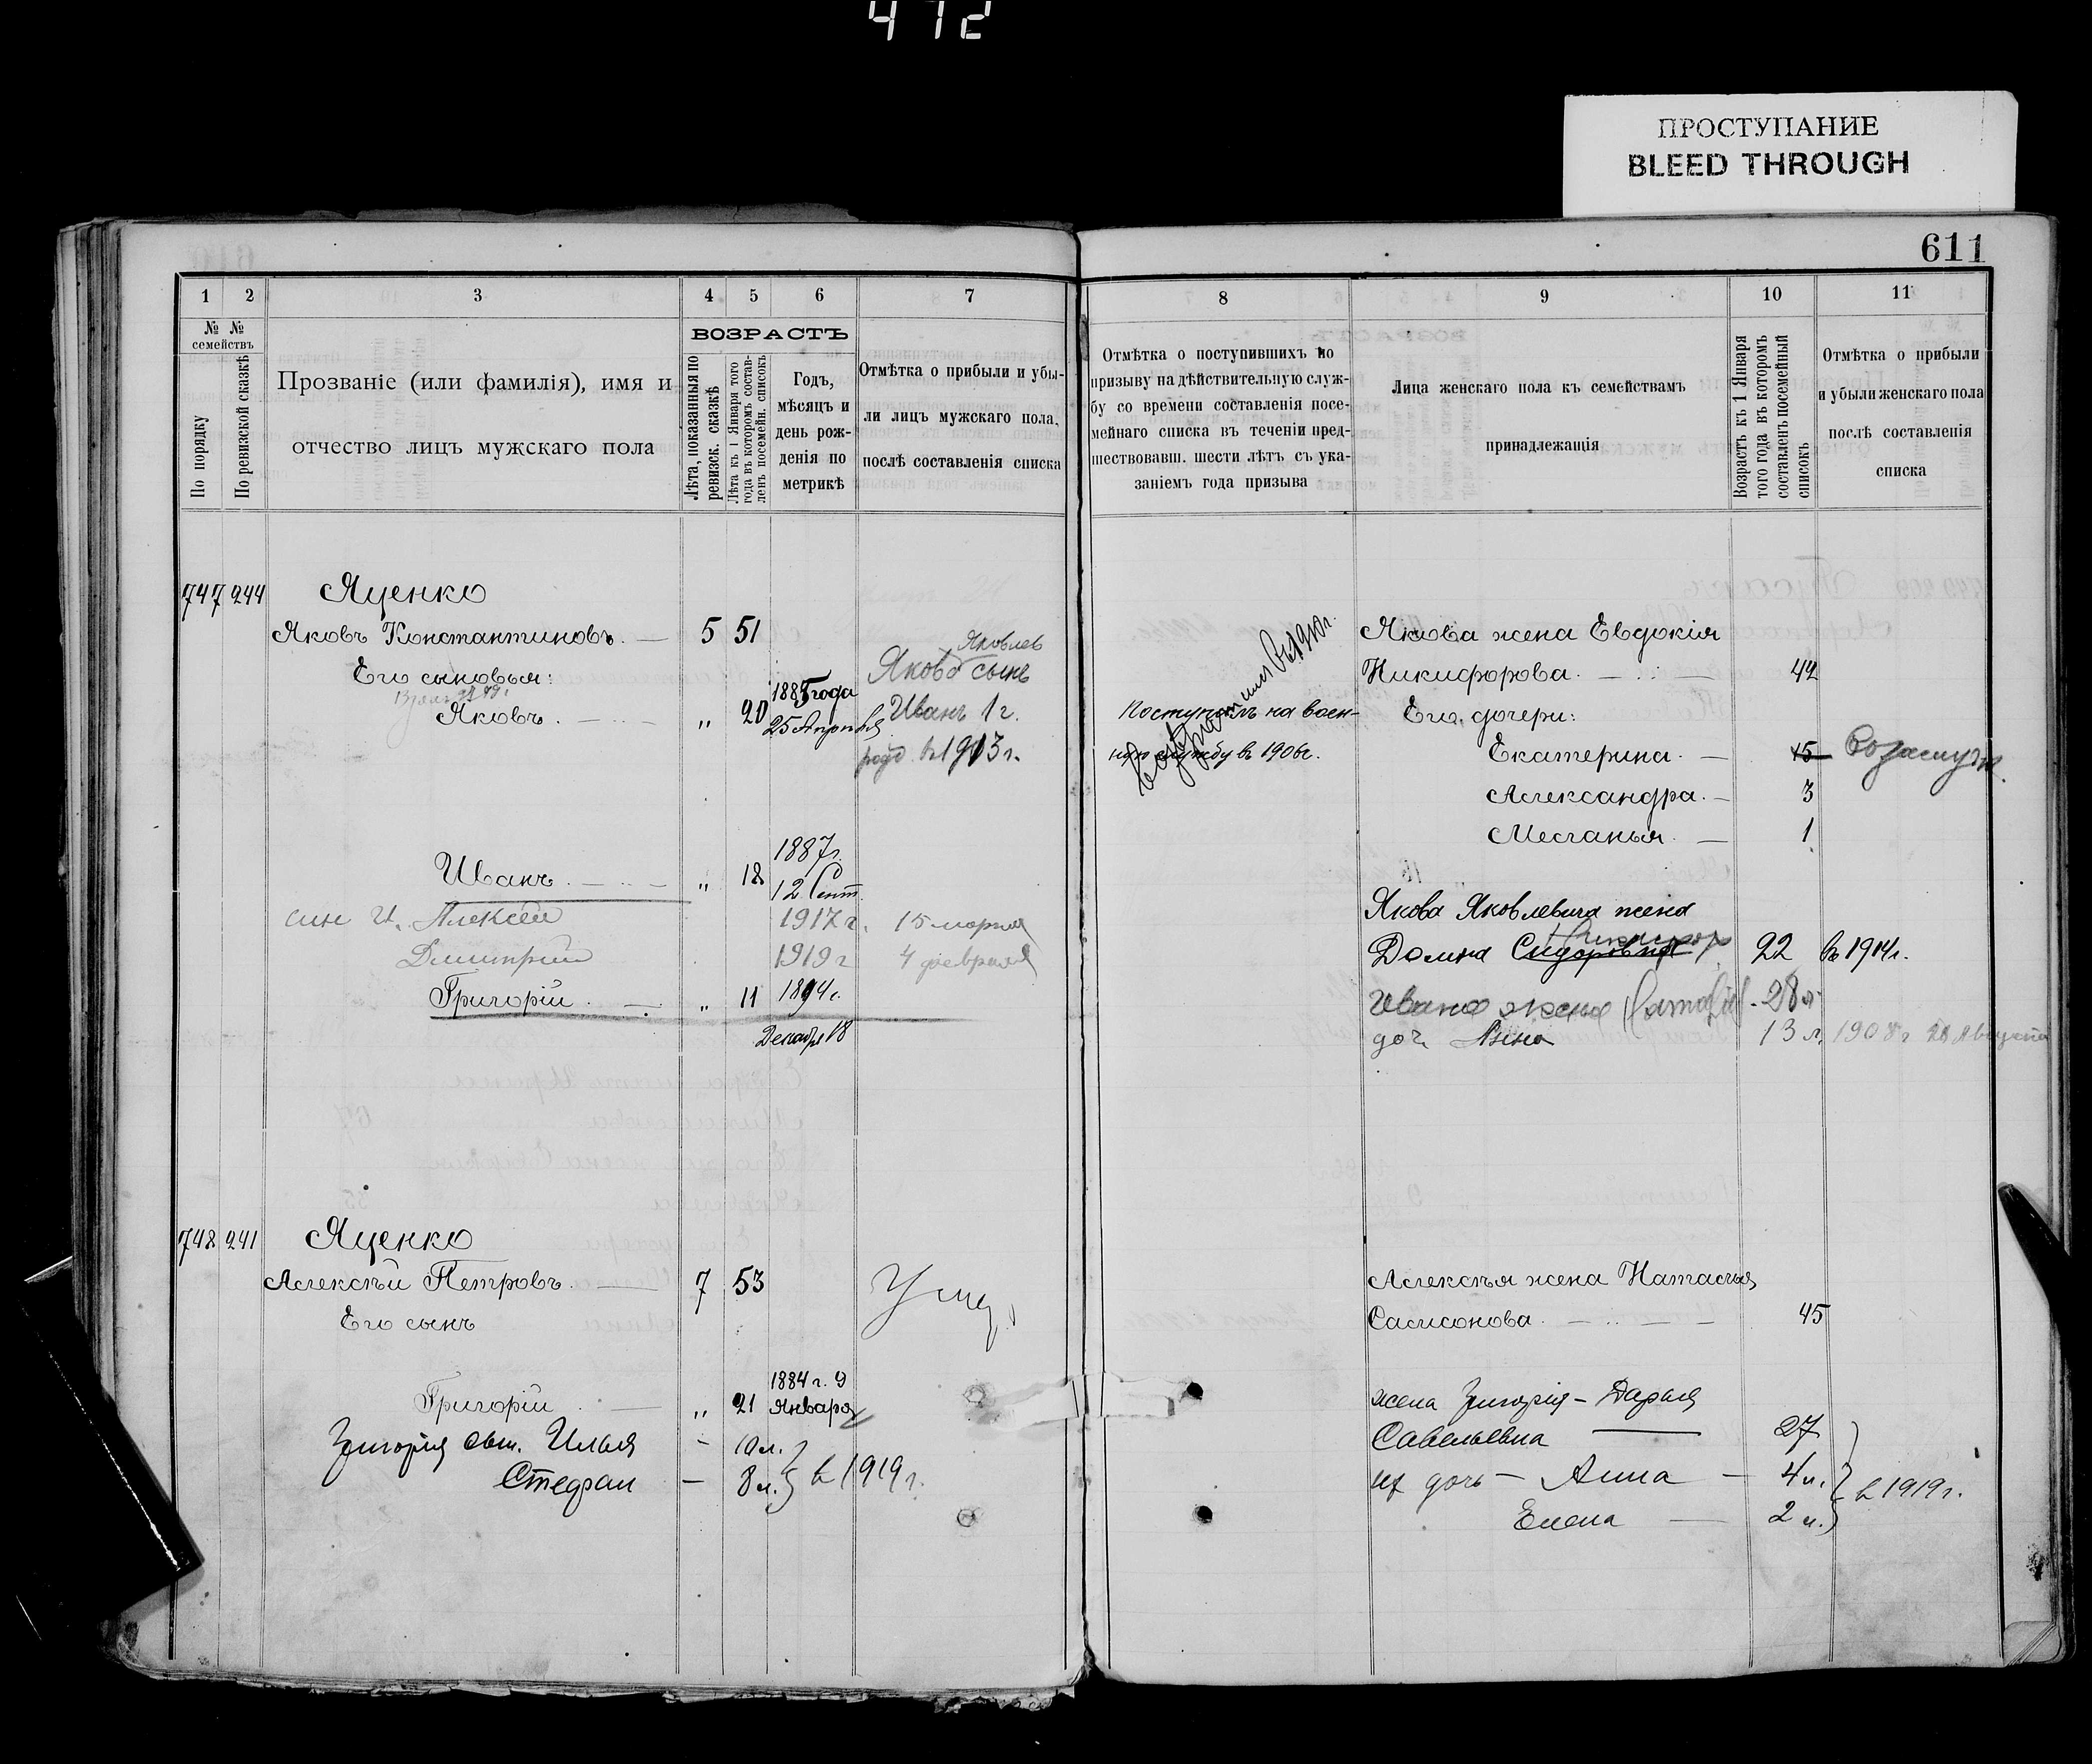 412
ПРОСТУПАНИЕ
BLEED THROUGH
611
1 2 3 4 5 6 7
№ № семействъ
По порядку
По ревизской сказкѣ
Прозваніе (или фамилія), имя и
отчество лицъ мужскаго пола
ВОЗРАСТЪ
Лѣта, показанныя по
ревизск. сказкѣ
Лѣта къ 1 Января того
года въ которомъ состав-
ленъ посемейн. списокъ
Годъ,
мѣсяцъ и
день рож-
денія по
метрикѣ
Отмѣтка о прибыли и убы-
ли лицъ мужскаго пола,
послѣ составленія списка
747 244 Яценко
Яковъ Константиновъ. — 5 51
Его сыновья:
Яковъ. — „ 20 1885 года
25 Апрѣля
Яковлев
Якова сынъ
Иванъ 1 г.
род. в 1913 г.
Иванъ. — „ 18 1887 г.
12 Сент.
син И. Алексей 1917 г. 15 марта
Дмитрий 1919 г 4 февраля
Григорій. — „ 11 1894 г.
Декабря 18
748 241 Яценко
Алексѣй Петровъ. — 7 53
Его сынъ
Григорій — „ 21 1884 г. 9
Января
Григорія сын. Илья - 10 л.
Стефан — 8 л. } в 1919 г.
8 9 10 11
Отмѣтка о поступившихъ по
призыву на дѣйствительную служ-
бу со времени составленія посе-
мейнаго списка въ теченіи пред-
шествовавш. шести лѣтъ съ ука-
заніемъ года призыва
Лица женскаго пола къ семействамъ
принадлежащія
Возрастъ къ 1 Января
того года въ которомъ
составленъ посемейный
списокъ
Отмѣтка о прибыли
и убыли женскаго пола
послѣ составленія
списка
Поступилъ на воен-
ную службу в 1906 г.
Якова жена Евдокія
Никифорова. — 42
Его дочери:
Екатерина. — 15 В замуж.
Александра. — 3
Меланья. — 1
Якова Яковлевича жена
Домна Сидоровна 22 в 1914 г.
Ивана жена 28 л.
доч. Анна 13 л. 1908 г Августа
Алексѣя жена Наталья
Самсонова. — 45
жена Григорія — Дарья
Савельевна — 27
их дочь — Анна — 4 л.
Елена — 2 л. } в 1919 г.